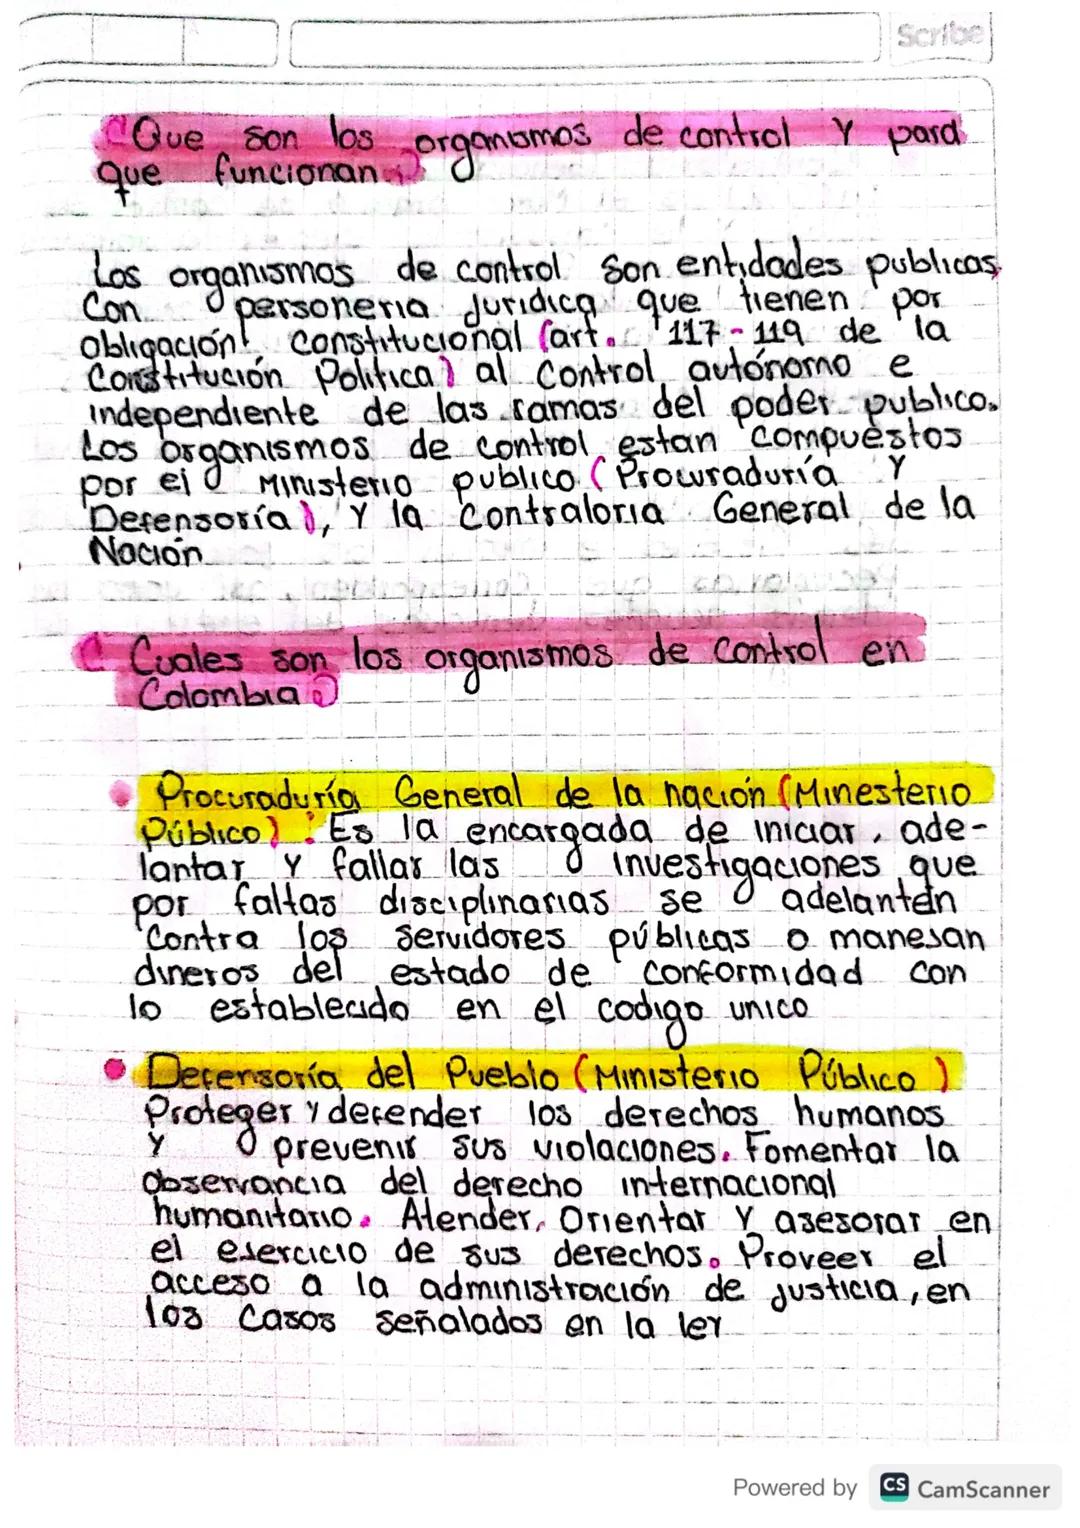 Scribe
¿Que son los organismos de control y para
que funcionan?
Los organismos de control son entidades publicas
Con personeria Juridica que tienen por
obligación constitucional (art. 117-119 de la
Constitución Politica) al control autónomo e
independiente de las ramas del poder publico.
Los organismos de control estan compuestos
por el Ministerio publico (Procuraduría Y
Defensoría), Y la contraloria General de la
Nación
¿Cuales son los organismos de control en
Colombia?
• Procuraduría General de la nación (Minesterio
Público): Es la encargada de iniciar, ade-
lantar Y fallar las investigaciones que
por faltas disciplinarias se adelantén
contra los servidores públicas o manejan
dineros del estado de conformidad con
lo establecido en el codigo unico
• Defensoría del Pueblo (Ministerio Público)
Proteger y defender los derechos humanos
Y prevenir sus violaciones. Fomentar la
observancia del derecho internacional
humanitario. Atender, Orientar Y asesorar en
el ejercicio de sus derechos. Proveer el
acceso a la administración de justicia, en
los casos señalados en la ley
Powered by CS CamScanner